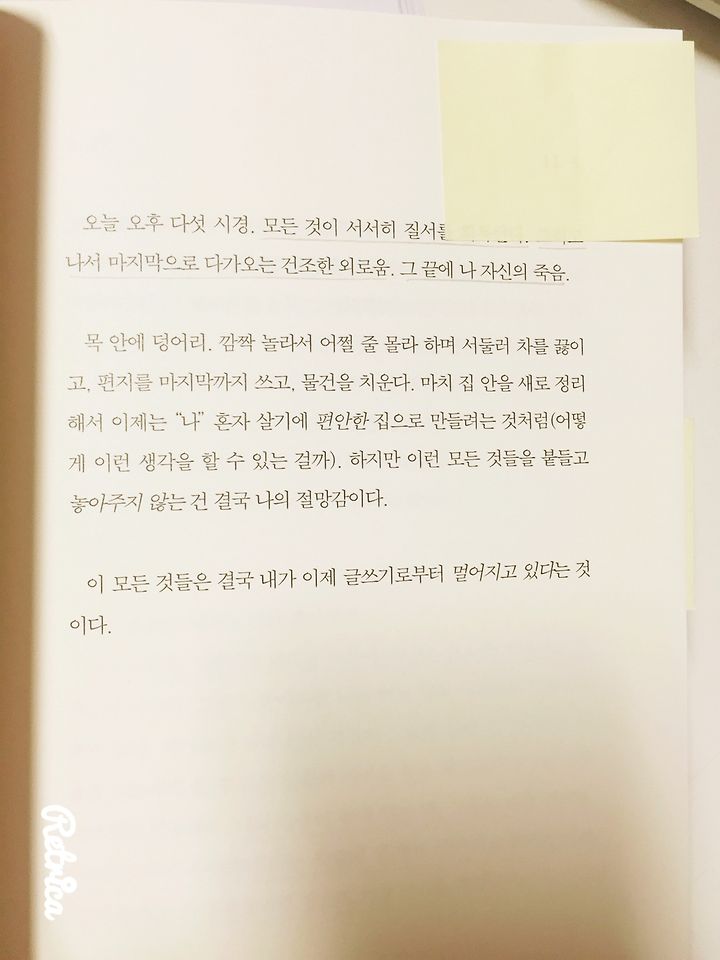 오늘 오후 다섯 시경. 모든 것이 서서히 질서를
나서 마지막으로 다가오는 건조한 외로움. 그 끝에 나 자신의 죽음.
목 안에 덩어리. 깜짝 놀라서 어쩔 줄 몰라 하며 서둘러 차를 끓이
고, 편지를 마지막까지 쓰고, 물건을 치운다. 마치 집 안을 새로 정리
해서 이제는 “나” 혼자 살기에 편안한 집으로 만들려는 것처럼(어떻
게 이런 생각을 할 수 있는 걸까). 하지만 이런 모든 것들을 붙들고
놓아주지 않는 건 결국 나의 절망감이다.
이 모든 것들은 결국 내가 이제 글쓰기로부터 멀어지고 있다는 것
이다.
Retrica